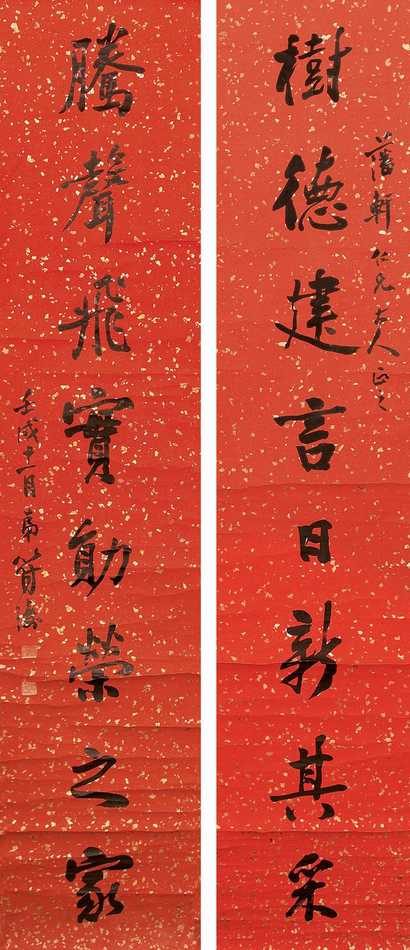 藩軒仁兄大人正之
樹德建言日新其采
騰聲飛實勛榮之家
壬戌十一月